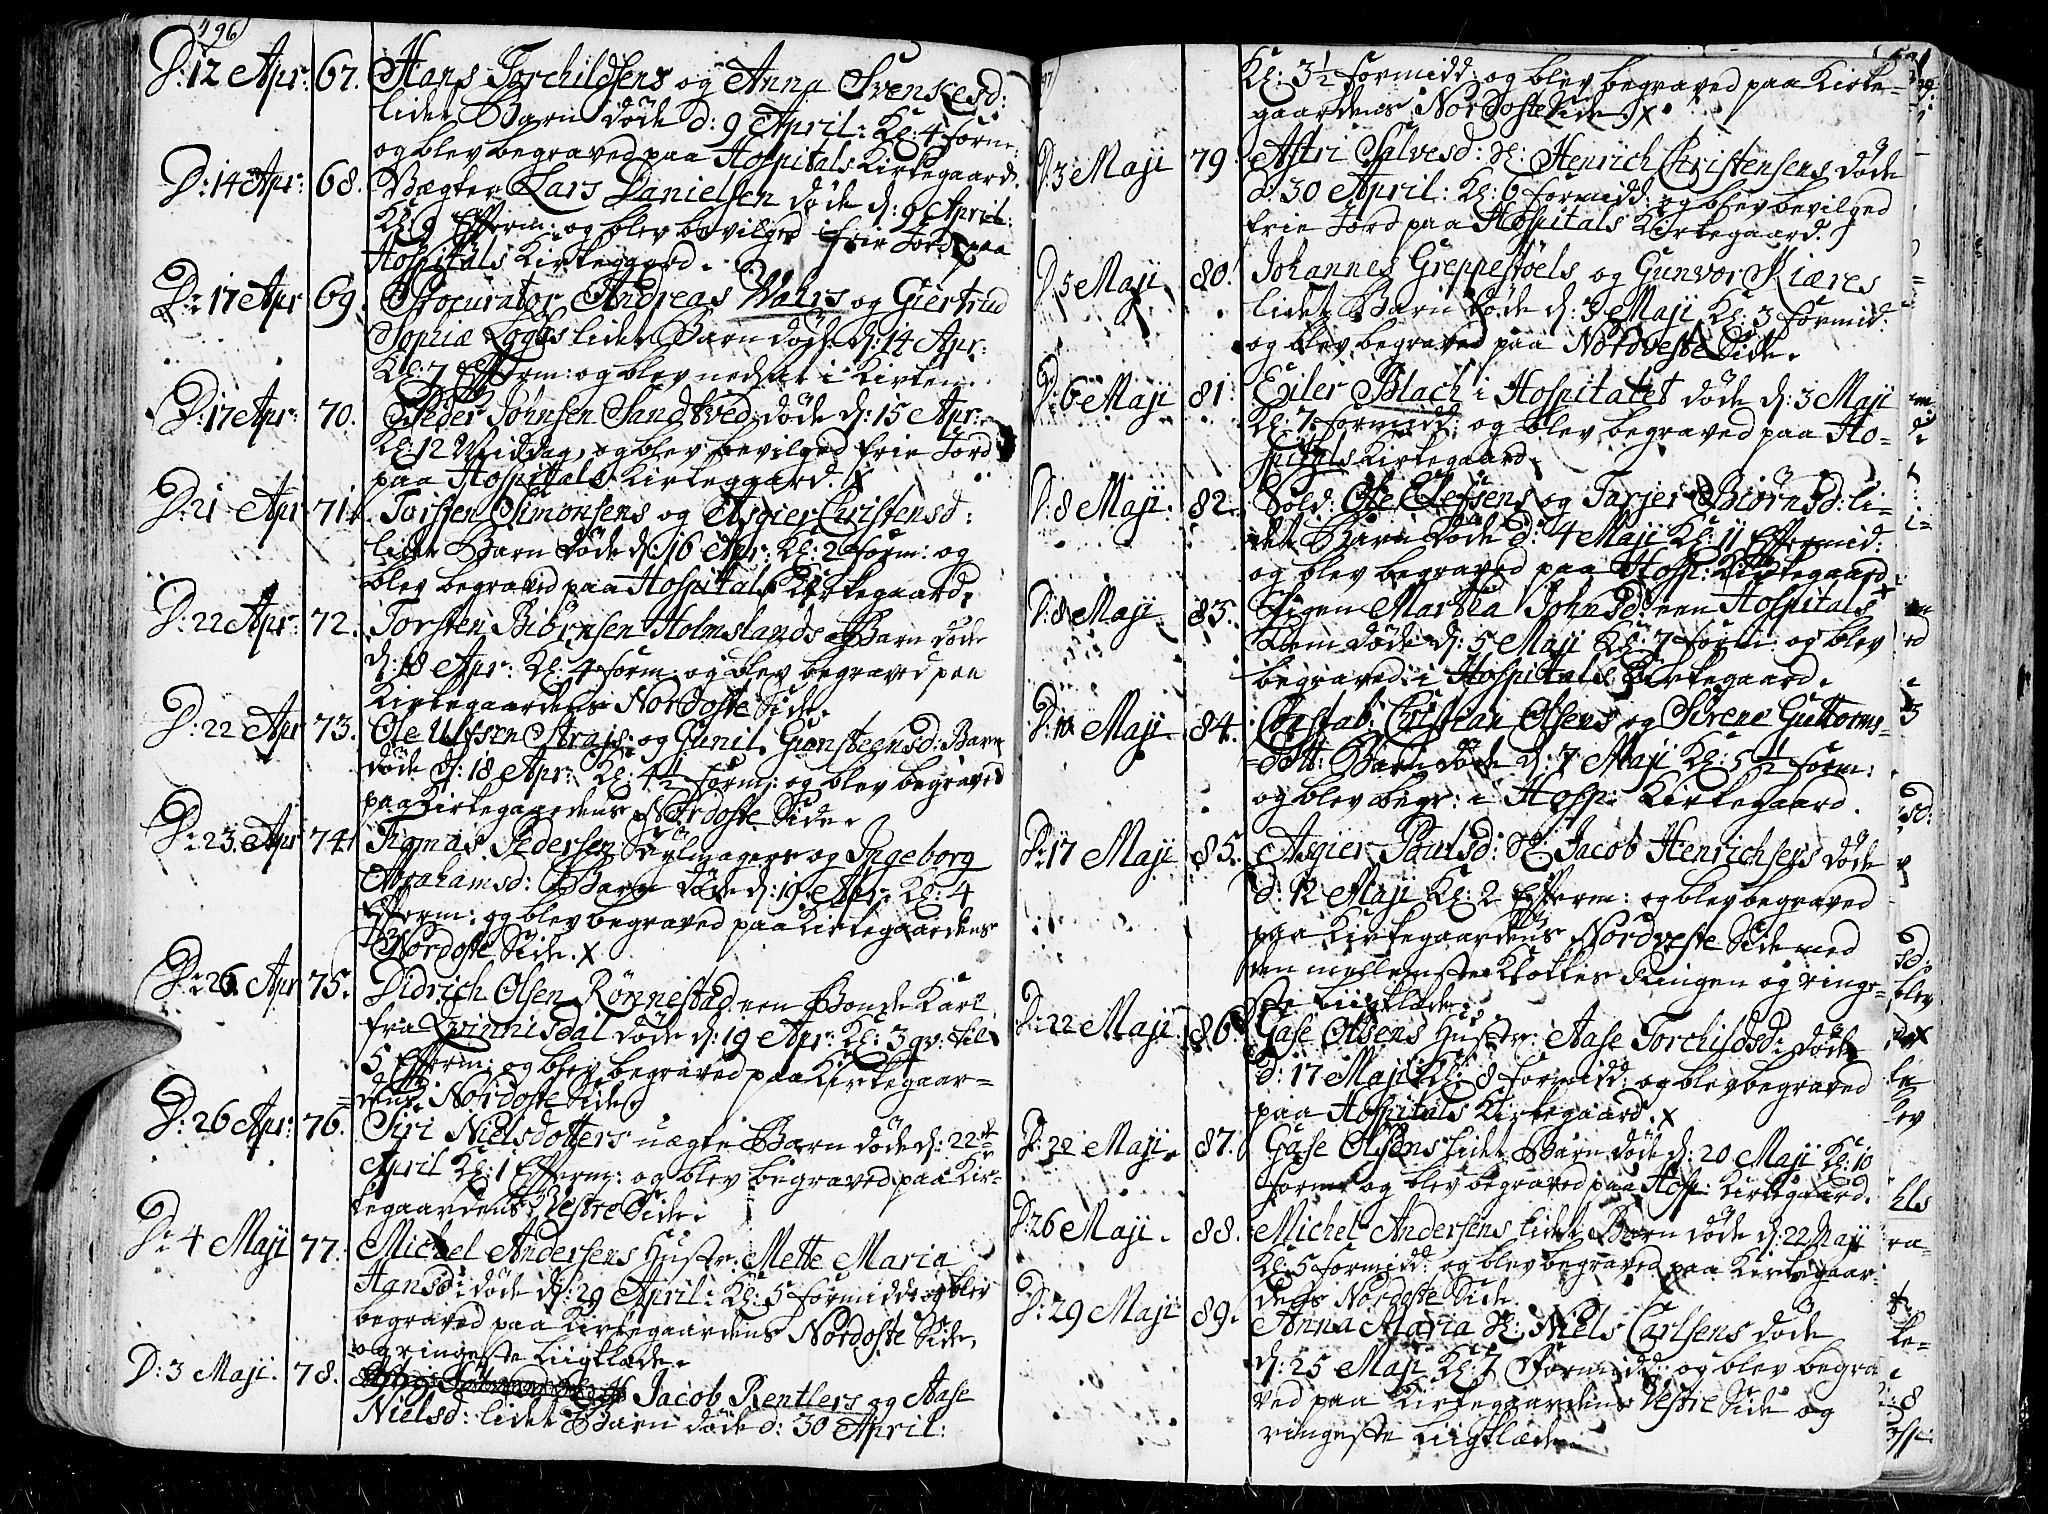 496
D: 12 Apr: 67. Hans Torchildsens og Anna Svenkesd:
lidet Barn døde d: 9 April: Kl: 4 form:
og blev begraved paa Hospitals Kirkegaard.
D: 14 Apr: 68. Vægter Lars Danielsen døde d: 9 April:
Kl: 9 Efterm: og blev bevilged frie Jord paa
Hospitals Kirkegaard.
D: 17 Apr 69. Procurator Andreas Wahrs og Giertrud
Sophiæ Loggs lidet Barn døde d: 14 Apr:
Kl: 7 Efterm: og blev nedsat i Kirken.
D: 17 Apr: 70. Peder Johnsen Sandtved døde d: 15 Apr:
Kl: 12 Middag, og blev bevilged frie Jord
paa Hospitals Kirkegaard. X
D: 21 Apr 71. Torsten Simonsens og Asgier Christensd:
lidet Barn døde d: 16 Apr: Kl: 2 form: og
blev begraved paa Hospitals Kirkegaard.
D: 22 Apr: 72. Torsten Biörnsen Holmslands Barn døde
d: 18 Apr: Kl: 4 form: og blev begraved paa
Kirkegaardens Nordoste Side.
D: 22 Apr 73. Ole Ulfsen Strajs og Gunil Gunsteensd: Barn
døde d: 18 Apr: Kl: 4½ form: og blev begraved
paa Kirkegaardens Nordoste Side.
D: 23 Apr 74. Tigmas Pedersen og Ingeborg
Abrahamsd: Barn døde d: 19 Apr: Kl: 4
Efterm: og blev begraved paa Kirkegaardens
Nordoste Side. X
D: 26 Apr 75. Didrich Olsen Rönnestad een Bonde Karl
fra Qvinnisdal døde d: 19 Apr: Kl: 3 qv: til
5 Efterm: og blev begraved paa Kirkegaar=
=dens Nordoste Side.
D: 26 Apr: 76. Siri Nielsdotters uægte Barn døde d: 22de
April Kl: 1 Efterm: og blev begraved paa Kir=
kegaardens Vestre Side.
D: 4 Maji 77. Michel Andersens Hustr: Mette Maria
Hansd: døde d: 29 April: Kl: 5 formidd: og blev
begraved paa Kirkegaardens Nordoste Side
og ringeste Liigklæde.
D: 3 Maji. 78. Jacob Rentlers og Aase
Nielsd: lidet Barn døde d: 30 April:
Kl: 3½ formidd: og blev begraved paa Kirke=
gaardens Nordoste Side. X
D: 3 Maji 79. Astri Salvesd: H: Henrich Christensens døde
d: 30 April: Kl: 6 formidd: og blev bevilged
frie Jord paa Hospitals Kirkegaard.
D: 5 Maji 80. Johannes Greppestöels og Gunvor Kiæres
lidet Barn døde d: 3 Maji Kl: 3 formid:
og blev begraved paa Nordveste Side.
D: 6 Maji 81. Eiler Blach i Hospitalet døde d: 3 Maji
Kl: 7 formidd: og blev begraved paa Ho=
spitals Kirkegaard.
D: 8 Maji. 82. Sold: Ole Olefsens og Tarjer Biörnsd: li=
det Barn døde d: 4 Maji Kl: 11 Eftermid:
og blev begraved paa Hosp: Kirkegaard.
D: 8 Maji. 83. Pigen Martha Johnsd: een Hospitals
Lem døde d: 5 Maji Kl: 7 form: og blev
begraved i Hospitals Kirkegaard.
D: 10 Maji 84. Constab: Christian Olsens og Sirene Guttorms=
=dott: Barn døde d: 7 Maji Kl: 5½ form:
og blev begr: i Hosp: Kirkegaard.
D: 17 Maji 85. Asgier Poulsd: H: Jacob Henrichsens døde
d: 12 Maji Kl: 2 Efterm: og blev begraved
paa Kirkegaardens Nordveste Side med
den mellemste Klokkes Ringen og ringe=
ste Liigklæde.
D: 22 Maji 86. Gase Olsens Hustr: Aase Torchildsd: døde
d: 17 Maji Kl: 8 formidd: og blev begraved
paa Hospitals Kirkegaard. X
D: 22 Maji. 87. Gase Olsens lidet Barn døde d: 20 Maji Kl: 10
form: og blev begraved paa Hosp: Kirkegaard.
D: 26 Maji. 88. Michel Andersens lidet Barn døde d: 22 Maji
Kl: 5 formidd: og blev begraved paa Kirkegaar=
dens Nordoste Side.
D: 29 Maji 89. Anna Maria H: Niels Carlsens døde
d: 25 Maji Kl: 7 formidd: og blev begra
ved paa Kirkegaardens Vestre Side og
ringeste Liigklæde.